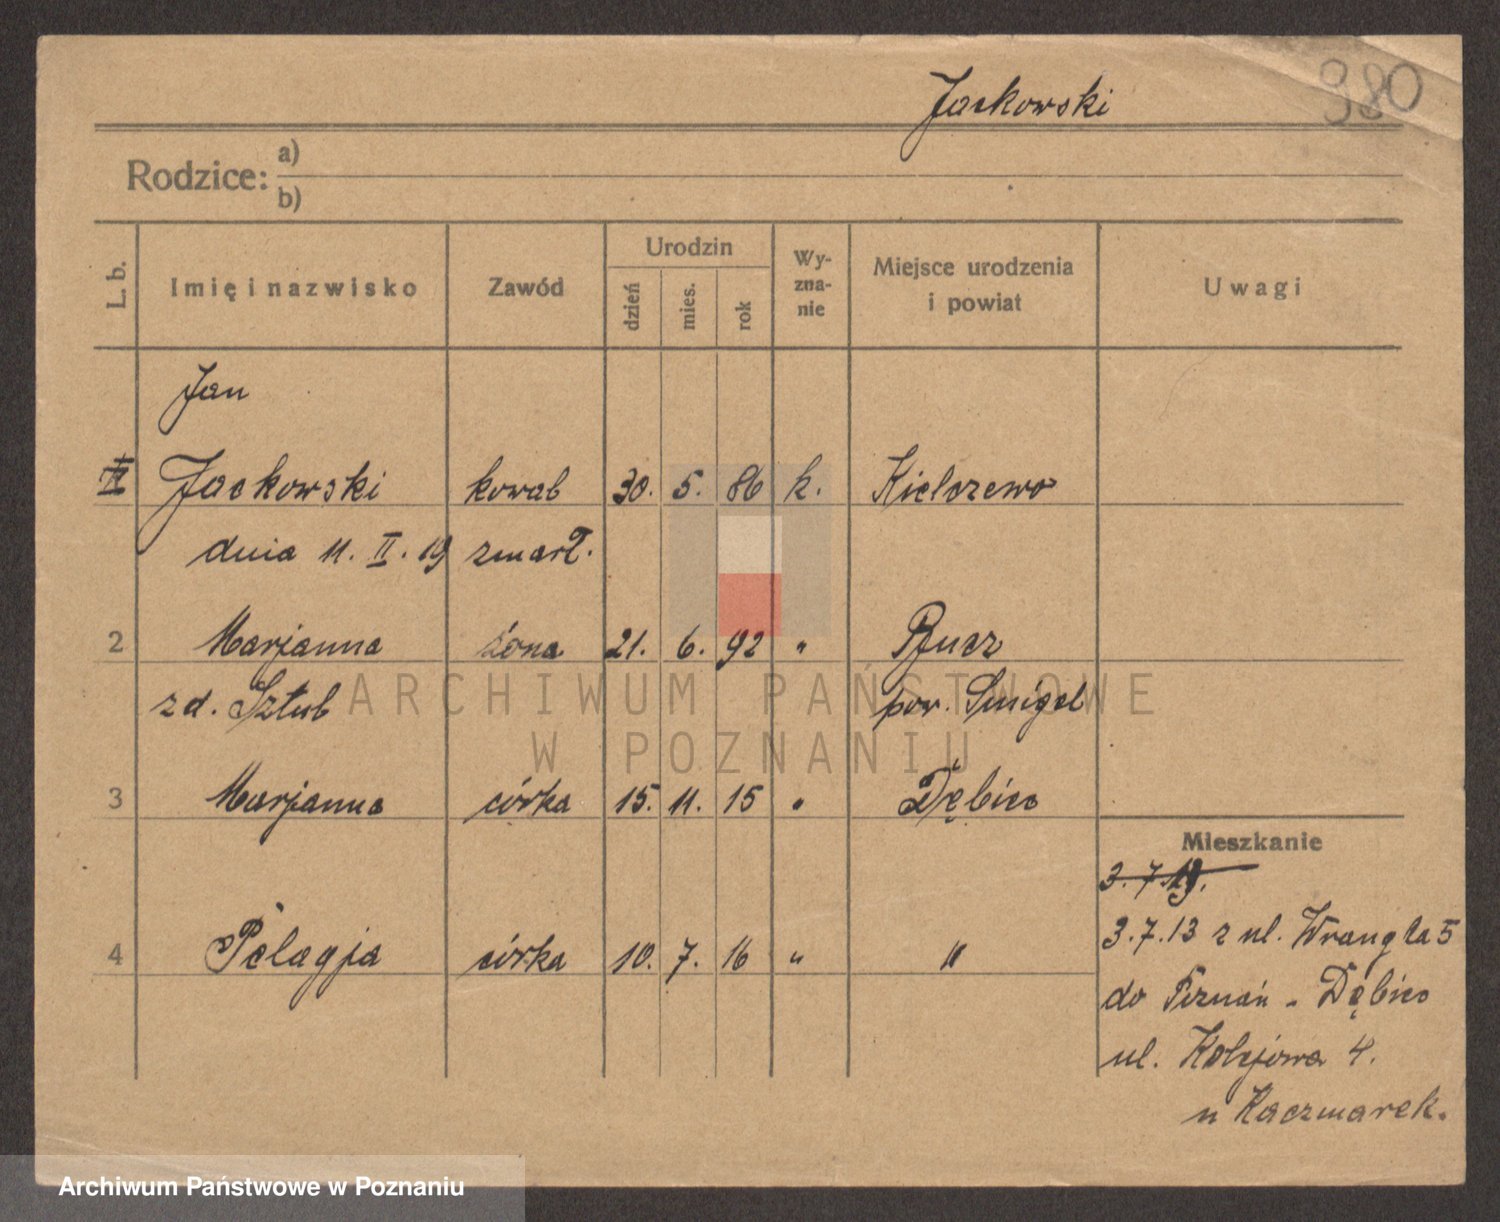 Jackowski
980
Rodzice: a)
b)
L. b.
Imię i nazwisko
Zawód
Urodzin
dzień
mies.
rok
Wy-
zna-
nie
Miejsce urodzenia
i powiat
Uwagi
Jan
Jackowski kowal 30. 5. 86 k. Kielczewo
dnia 11. II. 19 zmarł.
2 Marjanna żona 21. 6. 92 "
zd. Sztub pow. Smigel
3 Marjanna córka 15. 11. 15 " Dębiec
4 Pelagja córka 10. 7. 16 " "
Mieszkanie
3.7.19.
3.7.13 z ul. Wrangla 5
do Poznań - Dębiec
ul. Kolejowa 4.
u Kaczmarek.
ARCHIWUM PAŃSTWOWE
W POZNANIU
Archiwum Państwowe w Poznaniu